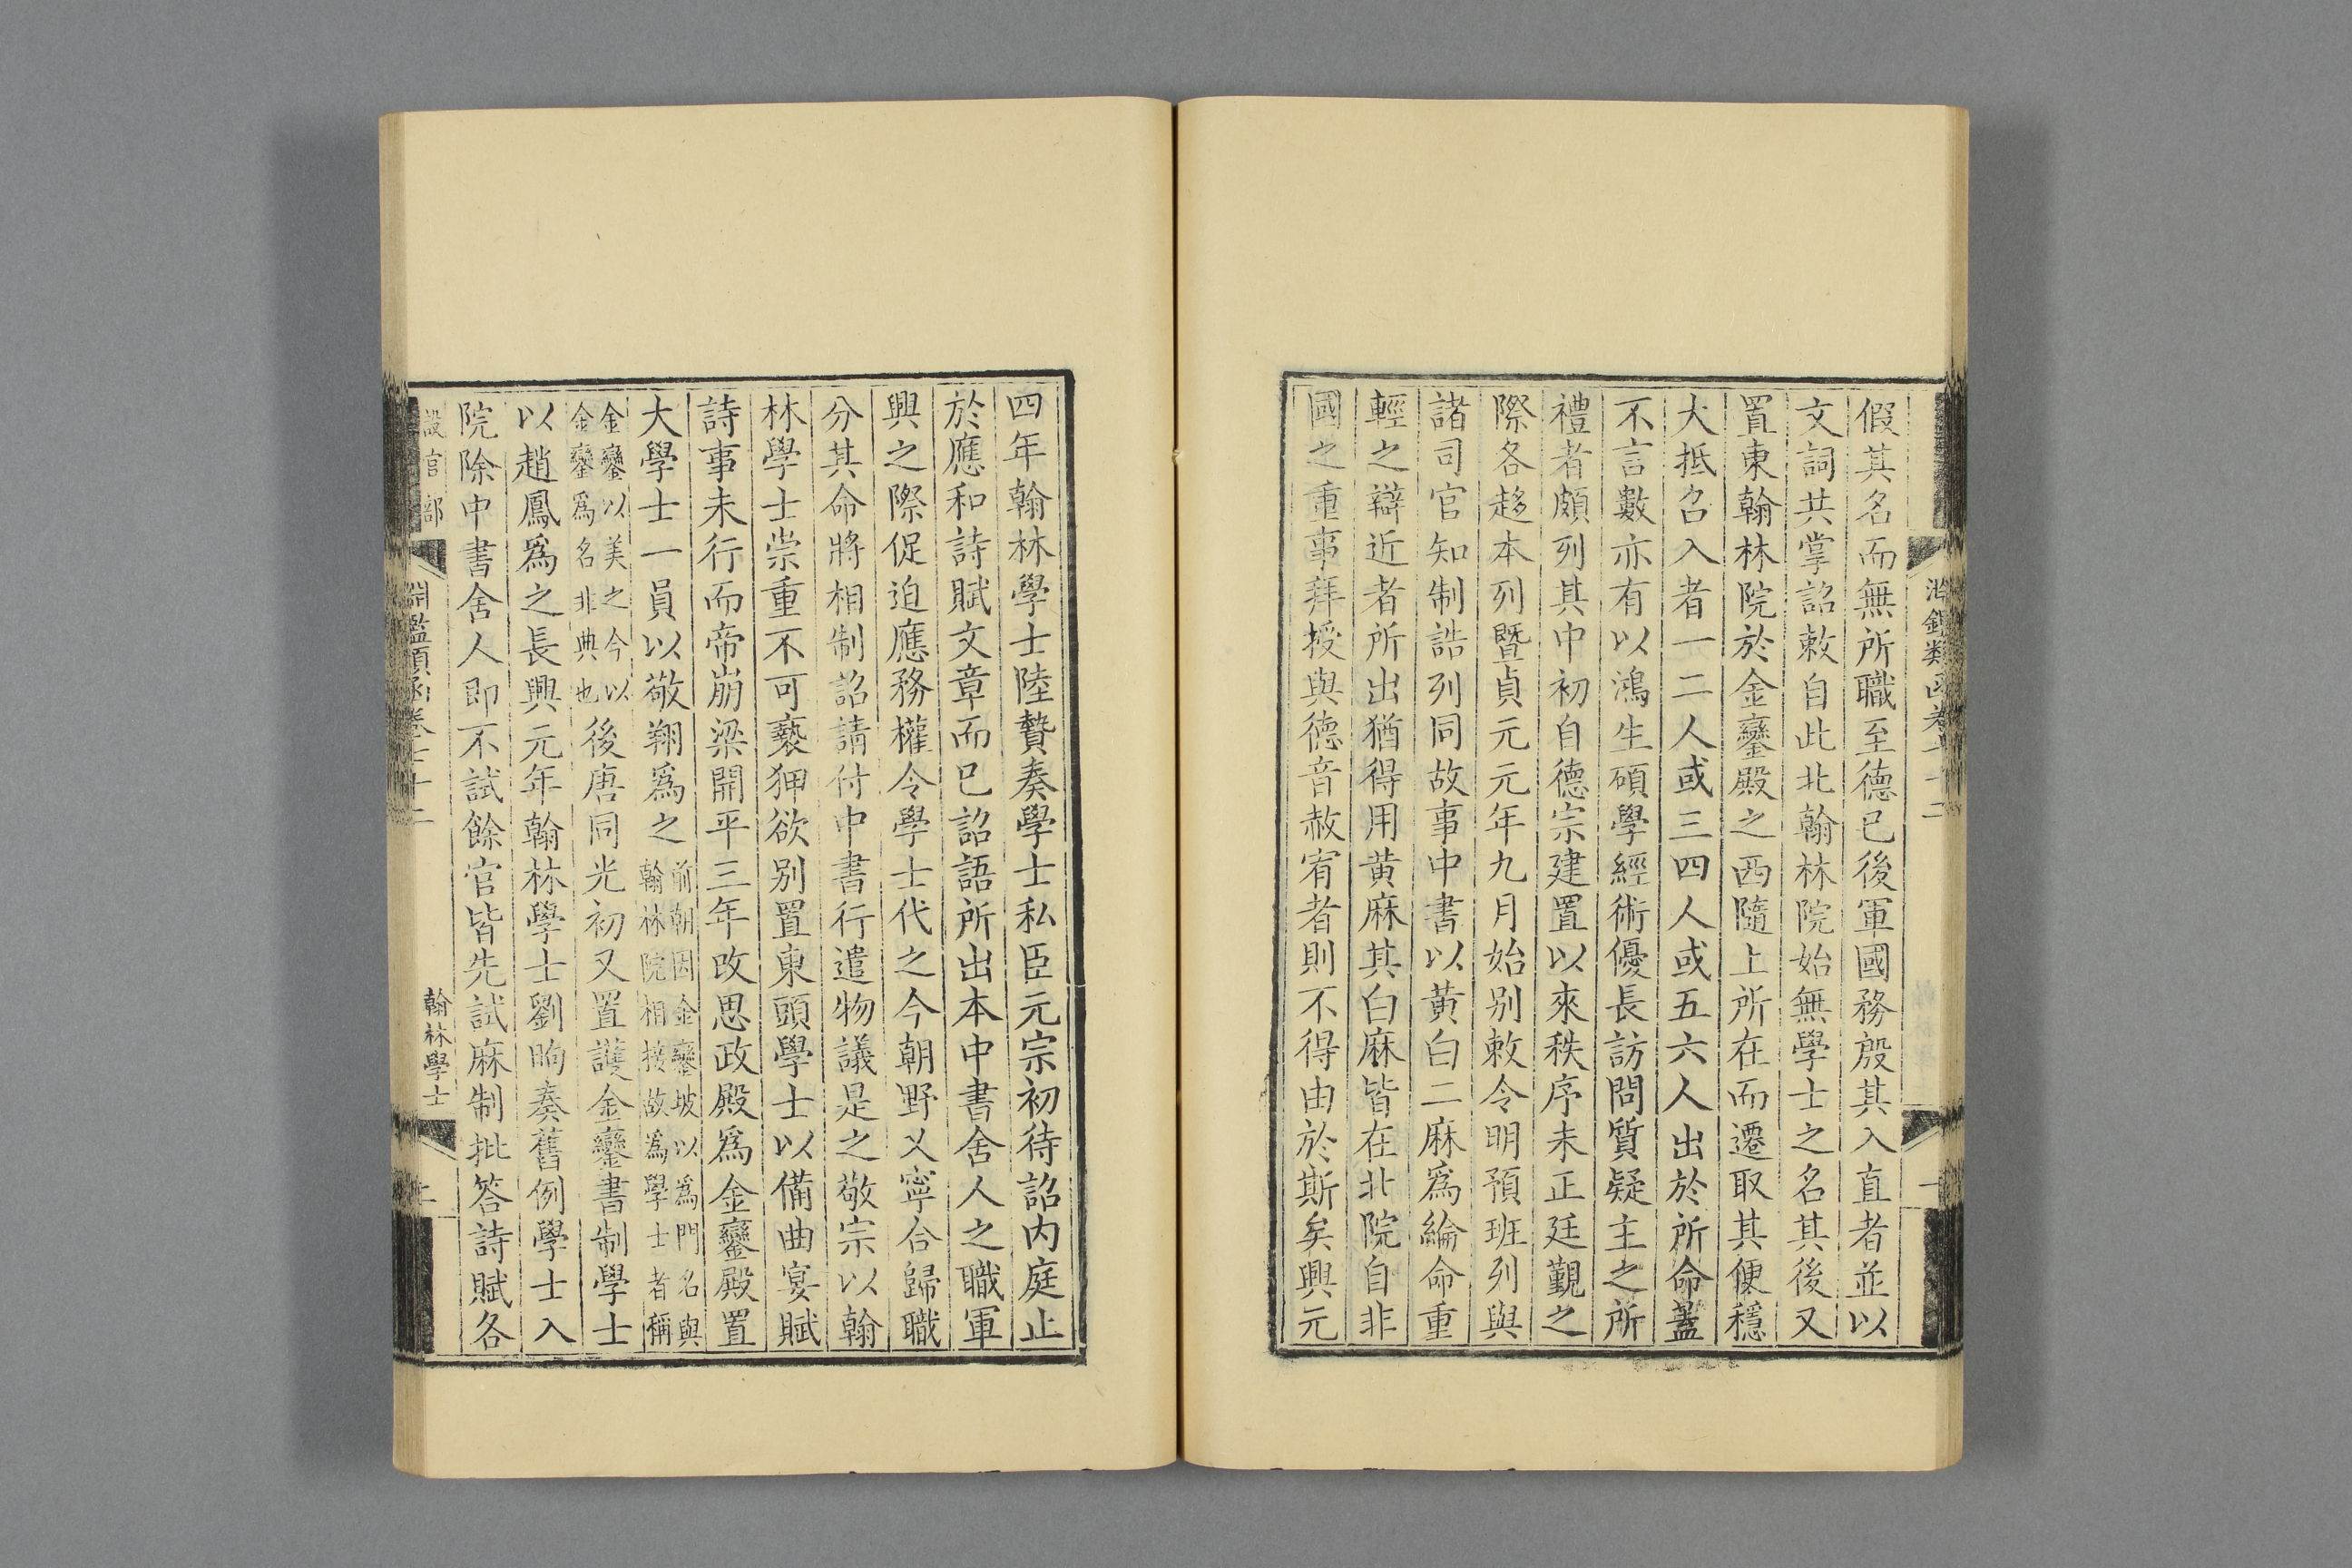 假其名而無所職至德已後軍國務殷其入直者並以
文詞共掌詔敕自此北翰林院始無學士之名其後又
置東翰林院於金鑾殿之西隨上所在而遷取其便穩
大抵召入者一二人或三四人或五六人出於所命蓋
不言數亦有以鴻生碩學經術優長訪問質疑主之所
禮者頗列其中初自德宗建置以來秩序未正廷覲之
際各趍本列暨貞元元年九月始别敕令明預班列與
諸司官知制誥列同故事中書以黃白二麻為綸命重
輕之辯近者所出猶得用黃麻其白麻皆在北院自非
國之重事拜授與德音赦宥者則不得由於斯矣興元
四年翰林學士陸贄奏學士私臣元宗初待詔内庭止
於應和詩賦文章而已詔語所出本中書舍人之職軍
興之際促迫應務權令學士代之今朝野乂寧合歸職
分其命將相制詔請付中書行遣物議是之敬宗以翰
林學士崇重不可褻狎欲别置東頭學士以備曲宴賦
詩事未行而帝崩梁開平三年改思政殿為金鑾殿置
大學士一員以敬翔為之
前朝因金鑾坡以為門名與
翰林院相接故為學士者稱
金鑾以美之今以
金鑾為名非典也
後唐同光初又置護金鑾書制學士
以趙鳳為之長興元年翰林學士劉昫奏舊例學士入
院除中書舍人即不試餘官皆先試麻制批答詩賦各
設官部
淵鑑類函卷七十二
翰林學士